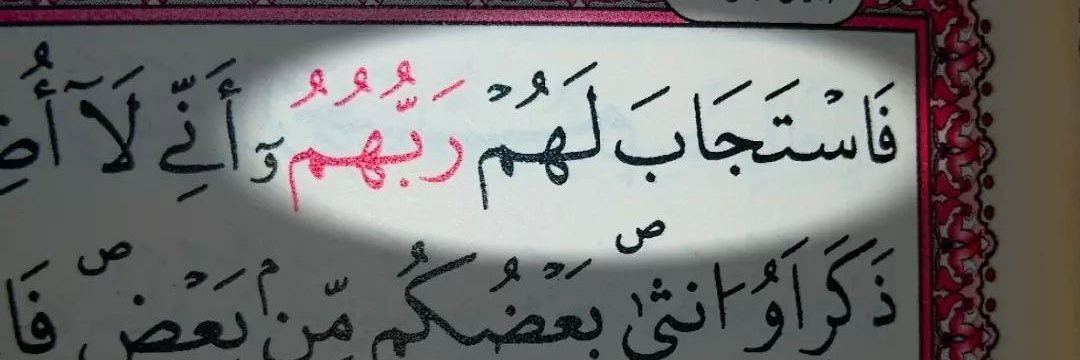 فَاسْتَجَابَ لَهُمْ رَبُّهُمُۥٓ أَنِّي لَآ أُضِ
ذَكَرٍ اَوُ انثىٰ ص بَعْضُكُم مِّنۢ بَعْضٍ ص فَا